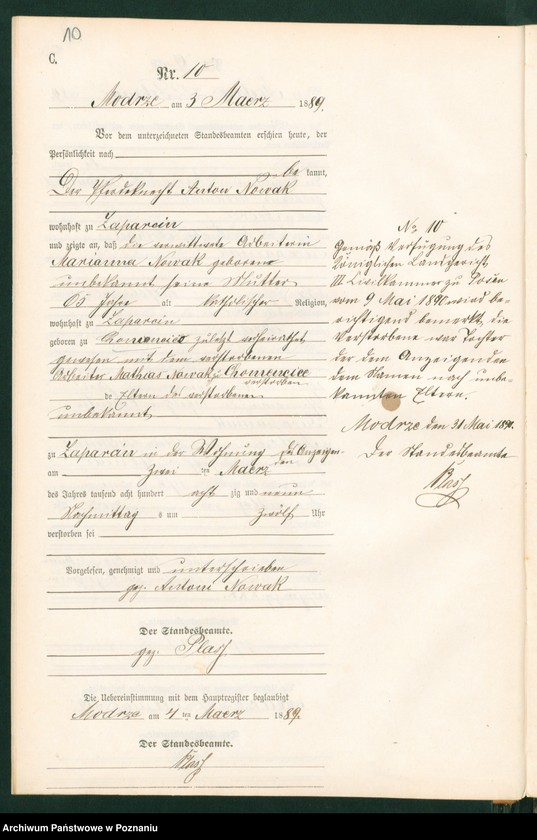 10
C.
Nr. 10
Modrze am 3 Maerz 1889.
Vor dem unterzeichneten Standesbeamten erschien heute, der
Persönlichkeit nach
be kannt,
Der Pferdeknecht Anton Nowak
wohnhaft zu Zaparcin
und zeigte an, daß die verwittwete Arbeiterin
Marianna Nowak geborene
unbekannt seine Mutter
65 Jahre alt katholischer Religion,
wohnhaft zu Zaparcin
geboren zu zuletzt verheirathet
gewesen mit dem verstorbenen
Arbeiter Mathias Nowak
verstorben
de Eltern der verstorbenen
unbekannt
zu Zaparcin in der Wohnung des Anzeigen-
den
am zwei ten Maerz
des Jahres tausend acht hundert acht zig und neun
Nachmittag s um zwölf Uhr
verstorben sei
Vorgelesen, genehmigt und unterschrieben
gez. Antoni Nowak
Der Standesbeamte.
gez.
Die Uebereinstimmung mit dem Hauptregister beglaubigt
Modrze am 4 ten Maerz 1889.
Der Standesbeamte.
No 10
Gemäß Verfügung des
Königlichen Landgerichts
III Civilkammer zu Posen
vom 9 Mai 1890 wird be-
richtigend bemerkt, die
Verstorbene war Tochter
der dem Anzeigenden
dem Namen nach unbe-
kannten Eltern.
Modrze den 31 Mai 1890.
Der Standesbeamte
Archiwum Państwowe w Poznaniu